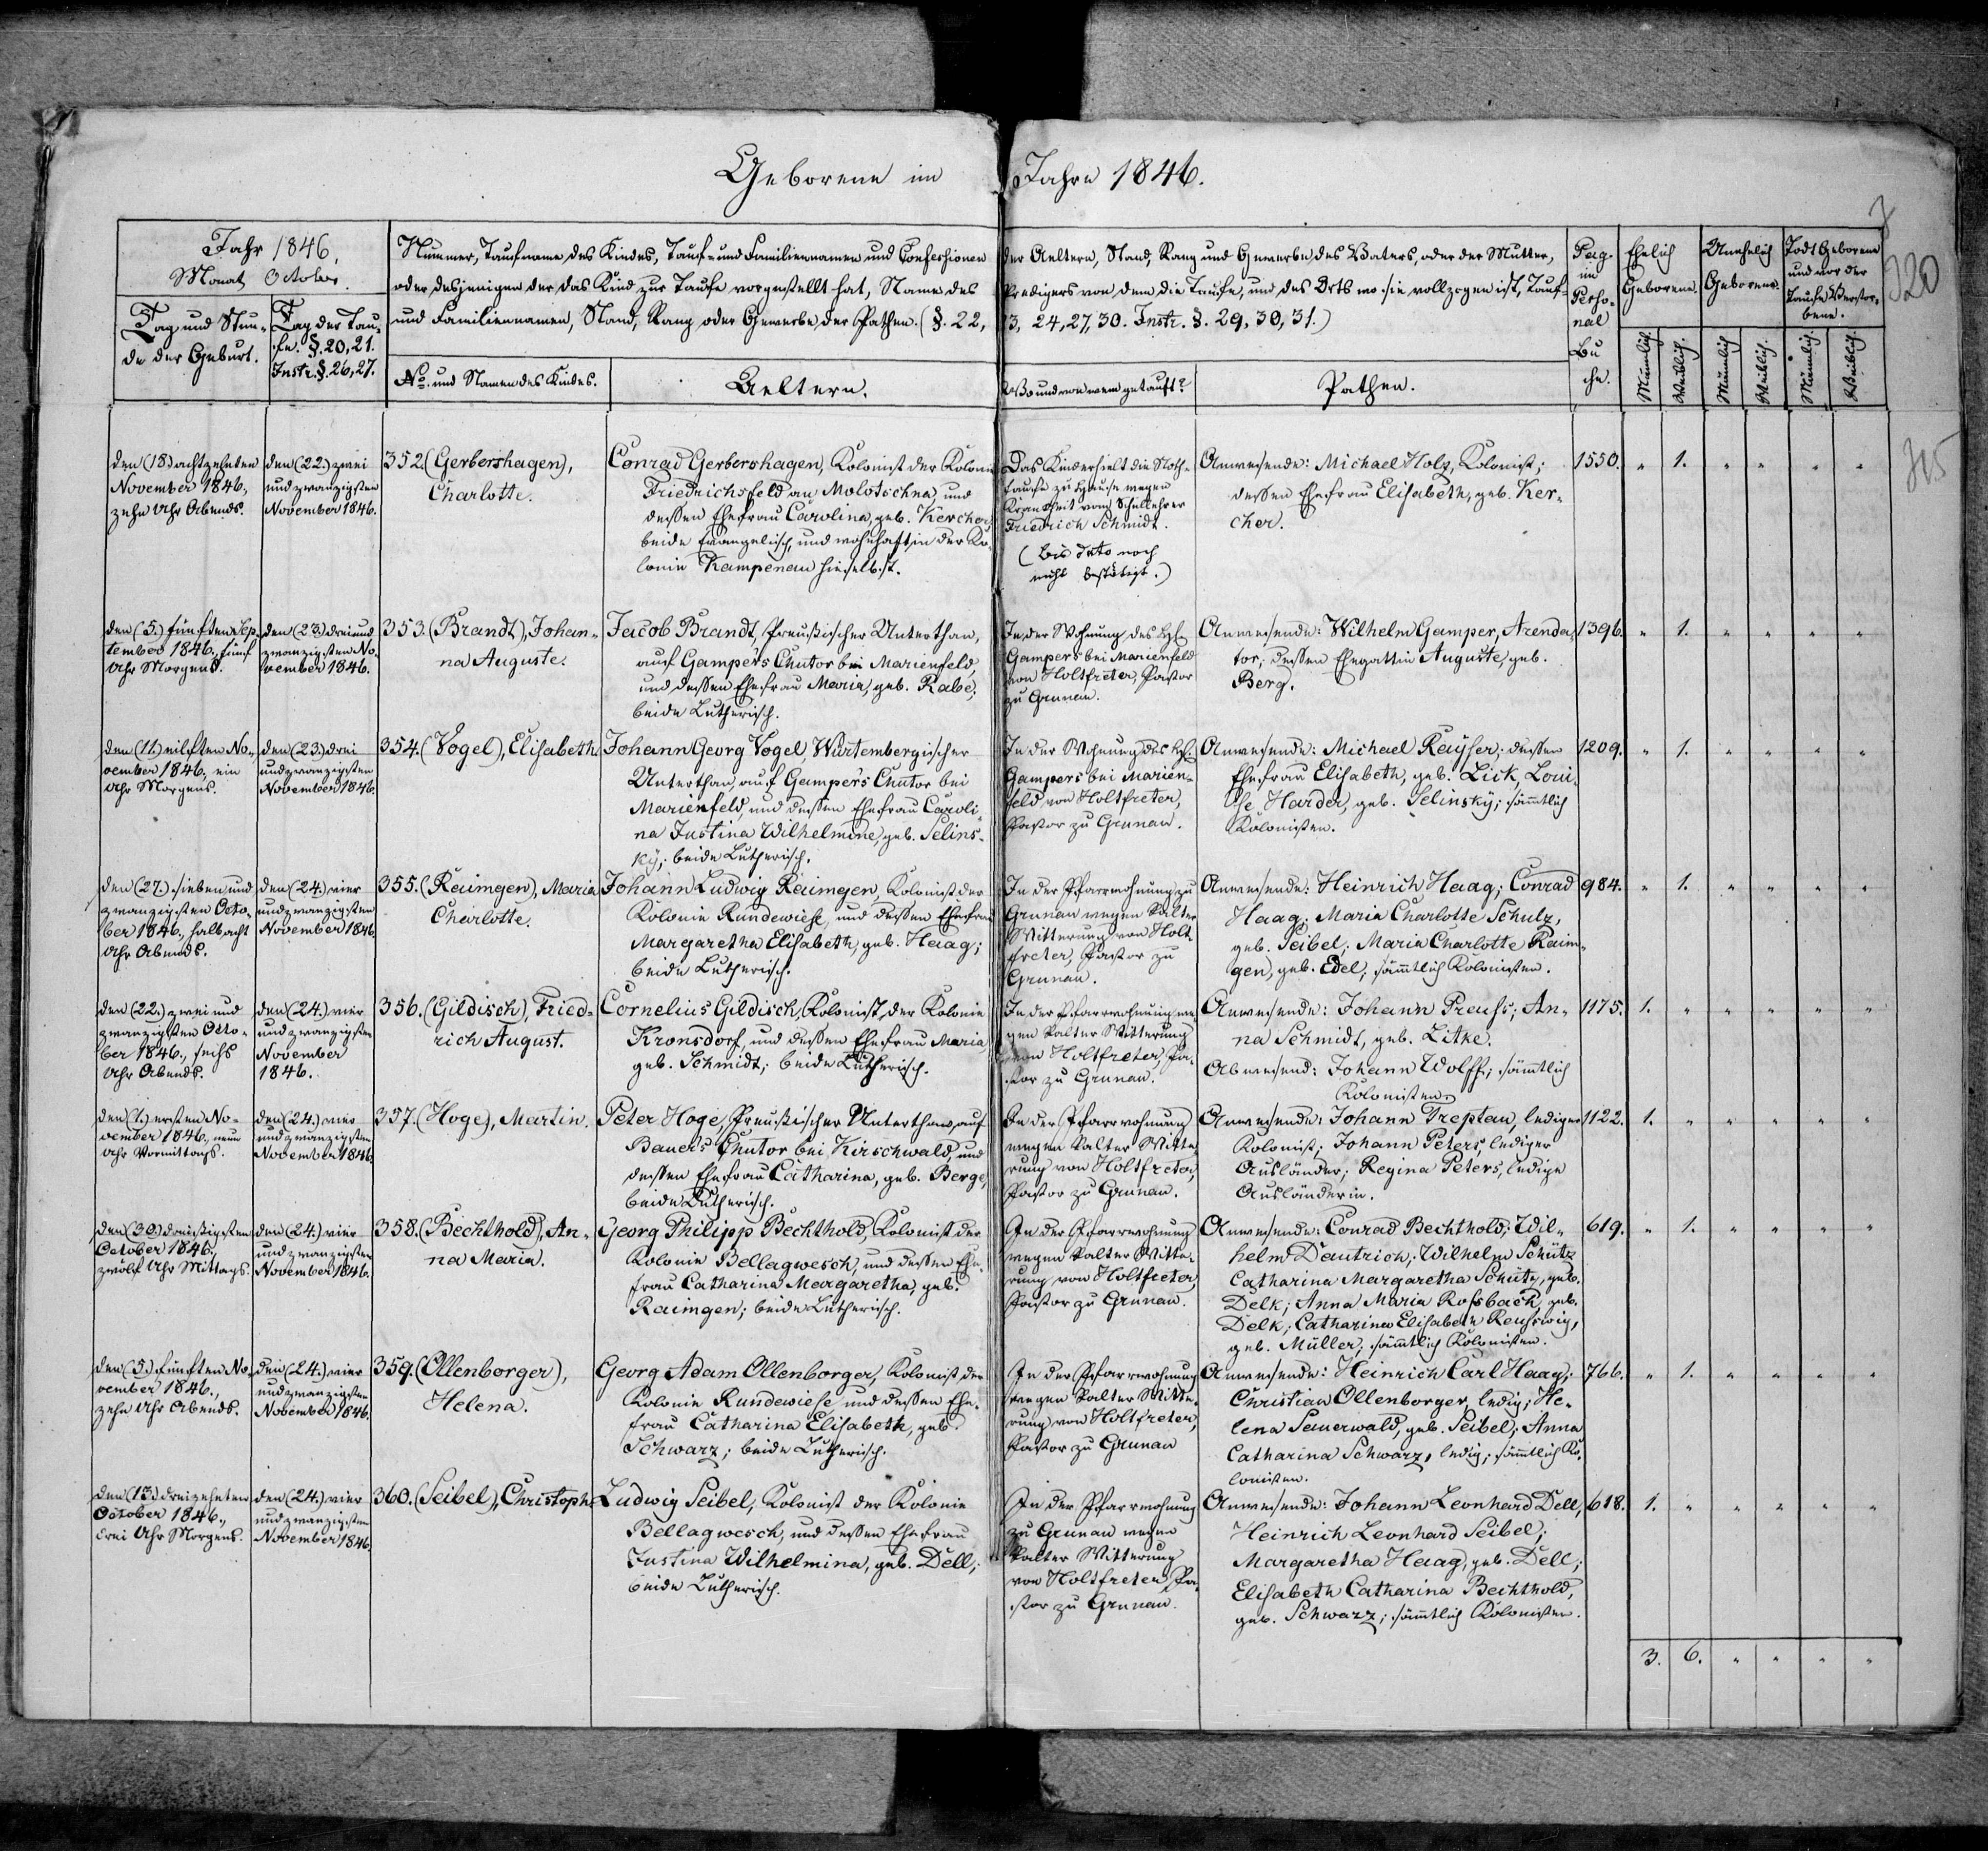 Geborene im Jahre 1846.
320
315
Jahr 1846.
Monat October.
Tag und Stun-
de der Geburt.
Tag der Tau-
fe. §. 20, 21.
Instr. §. 26, 27.
Nummer, Taufname des Kindes, Tauf- und Familiennamen und Confessionen der Aeltern, Stand, Rang und Gewerbe des Vaters, oder der Mutter,
oder desjenigen der das Kind zur Taufe vorgestellt hat, Name des Predigers von dem die Taufe, und des Orts wo sie vollzogen ist, Tauf-
und Familiennamen, Stand, Rang oder Gewerbe der Pathen. (§. 22, 23, 24, 27, 30. Instr. §. 29, 30, 31.)
No. und Namen des Kindes.
Aeltern.
Wo und von wem getauft?
Pathen.
Pag.
im
Perso-
nal
Bu
che.
Ehelich
Geborene.
Unehelich
Geborene.
Todt Geborene
und vor der
Taufe Verstor-
bene.
Männlich.
Weiblich.
Männlich.
Weiblich.
Männlich.
Weiblich.
den (18.) achtzehnten
November 1846.,
zehn Uhr Abends.
den (22.) zwei
und zwanzigsten
November 1846.
352. (Gerbershagen),
Charlotte.
Conrad Gerbershagen, Kolonist der Kolonie
Friedrichsfeld an Molotschna, und
dessen Ehefrau Carolina, geb. Kercher,
beide Evangelisch, und wohnhaft in der Ko-
lonie Kampenau hieselbst.
Das Kind erhielt die Noth-
taufe zu Hause wegen
Krankheit vom Schullehrer
Friedrich Schmidt.
(bis dato noch
nicht bestätigt.)
Anwesende: Michael Holz, Kolonist;
dessen Ehefrau Elisabeth, geb. Ker-
cher.
1550. " 1. " " " "
den (5.) fünften Sep-
tember 1846., fünf
Uhr Morgens.
den (23.) drei und
zwanzigsten No-
vember 1846.
353. (Brandt), Johan-
na Auguste.
Jacob Brandt, Preußischer Unterthan,
auf Gampers Chutor bei Marienfeld,
und dessen Ehefrau Maria, geb. Rabe;
beide Lutherisch.
In der Wohnung des H.
Gampers bei Marienfeld
von Holtfreter, Pastor
zu Grunau.
Anwesende: Wilhelm Gamper, Arenda-
tor; dessen Ehegattin Auguste, geb.
Berg.
1396. " 1. " " " "
den (11.) eilften No-
vember 1846., ein
Uhr Morgens.
den (23.) drei
und zwanzigsten
November 1846.
354. (Vogel), Elisabeth.
Johann Georg Vogel, Würtembergischer
Unterthan, auf Gampers Chutor bei
Marienfeld, und dessen Ehefrau Caroli-
na Justina Wilhelmine, geb. Selins-
ky; beide Lutherisch.
In der Wohnung des H.
Gampers bei Marien-
feld von Holtfreter,
Pastor zu Grunau.
Anwesende: Michael Kayser; dessen
Ehefrau Elisabeth, geb. Lick, Loui-
se Harder, geb. Selinsky; sämtlich
Kolonisten.
1209. " 1. " " " "
den (27.) sieben und
zwanzigsten Octo-
ber 1846., halb acht
Uhr Abends.
den (24.) vier
und zwanzigsten
November 1846.
355. (Raimgen), Maria
Charlotte.
Johann Ludwig Raimgen, Kolonist der
Kolonie Rundewiese, und dessen Ehefrau
Margaretha Elisabeth, geb. Haag;
beide Lutherisch.
In der Pfarrwohnung zu
Grunau wegen kalter
Witterung von Holt-
freter, Pastor zu
Grunau.
Anwesende: Heinrich Haag; Conrad
Haag; Maria Charlotte Schulz,
geb. Seibel; Maria Charlotte Raim-
gen, geb. Edel; sämtlich Kolonisten.
984. " 1. " " " "
den (22.) zwei und
zwanzigsten Octo-
ber 1846., sechs
Uhr Abends.
den (24.) vier
und zwanzigsten
November
1846.
356. (Gildisch), Fried-
rich August.
Cornelius Gildisch, Kolonist der Kolonie
Kronsdorf, und dessen Ehefrau Maria
geb. Schmidt; beide Lutherisch.
In der Pfarrwohnung we-
gen kalter Witterung
von Holtfreter, Pa-
stor zu Grunau.
Anwesende: Johann Preuss; An-
na Schmidt, geb. Litke.
Abwesend: Johann Wolff; sämtlich
Kolonisten.
1175. 1. " " " " "
den (1.) ersten No-
vember 1846., neun
Uhr Vormittags.
den (24.) vier
und zwanzigsten
November 1846.
357. (Hoge), Martin.
Peter Hoge, Preußischer Unterthan, auf
Bauers Chutor bei Kirschwald, und
dessen Ehefrau Catharina, geb. Berge,
beide Lutherisch.
In der Pfarrwohnung
wegen kalter Witte-
rung von Holtfreter,
Pastor zu Grunau.
Anwesende: Johann Treptau, lediger
Kolonist; Johann Peters, lediger
Ausländer; Regina Peters, ledige
Ausländerin.
1122. 1. " " " " "
den (30.) dreißigsten
October 1846.,
zwölf Uhr Mittags.
den (24.) vier
und zwanzigsten
November 1846.
358. (Bechthold), An-
na Maria.
Georg Philipp Bechthold, Kolonist der
Kolonie Bellagwesch, und dessen Ehe-
frau Catharina Margaretha, geb.
Raimgen; beide Lutherisch.
In der Pfarrwohnung
wegen kalter Witte-
rung von Holtfreter,
Pastor zu Grunau.
Anwesende: Conrad Bechthold; Wil-
helm Dautrich; Wilhelm Schütz
Catharina Margaretha Schütz, geb.
Delk; Anna Maria Rossbach, geb.
Delk; Catharina Elisabeth Reuswig,
geb. Müller; sämtlich Kolonisten.
619. " 1. " " " "
den (5.) fünften No-
vember 1846.,
zehn Uhr Abends.
den (24.) vier
und zwanzigsten
November 1846.
359. (Ollenborger),
Helena.
Georg Adam Ollenborger, Kolonist der
Kolonie Rundewiese, und dessen Ehe-
frau Catharina Elisabeth, geb.
Schwarz; beide Lutherisch.
In der Pfarrwohnung
wegen kalter Witte-
rung von Holtfreter,
Pastor zu Grunau
Anwesende: Heinrich Carl Haag;
Christian Ollenborger, ledig; He-
lena Sauerwald, geb. Seibel; Anna
Catharina Schwarz, ledig; sämtlich Ko-
lonisten.
766. " 1. " " " "
den (13.) dreizehnten
October 1846.,
drei Uhr Morgens.
den (24.) vier
und zwanzigsten
November 1846.
360. (Seibel), Christoph.
Ludwig Seibel, Kolonist der Kolonie
Bellagwesch, und dessen Ehefrau
Justina Wilhelmina, geb. Dell;
beide Lutherisch.
In der Pfarrwohnung
zu Grunau wegen
kalter Witterung
von Holtfreter, Pa-
stor zu Grunau.
Anwesende: Johann Leonhard Dell,
Heinrich Leonhard Seibel;
Margaretha Haag, geb. Dell;
Elisabeth Catharina Bechthold,
geb. Schwarz; sämtlich Kolonisten.
618. 1. " " " " "
3. 6. " " " "